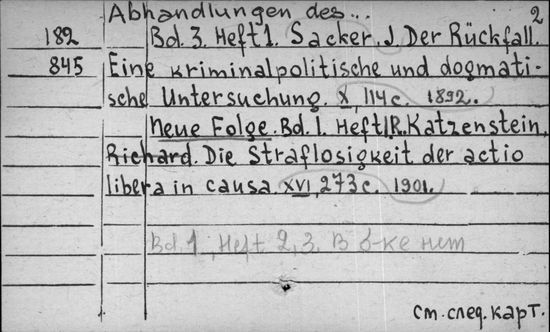 Abhandlungen des... 2
182 Bd. 3. Heft 1. Sacker. J. Der Rückfall.
845 Eine kriminalpolitische und dogmati-
sche Untersuchung. X, 114 c. 1892.
Neue Folge. Bd. 1. Heft 1. R. Katzenstein,
Richard. Die Straflosigkeit der actio
libera in causa. XVI, 273 c. 1901.
Bd. 1, Heft 2, 3. В б-ке нет
см. след. карт.